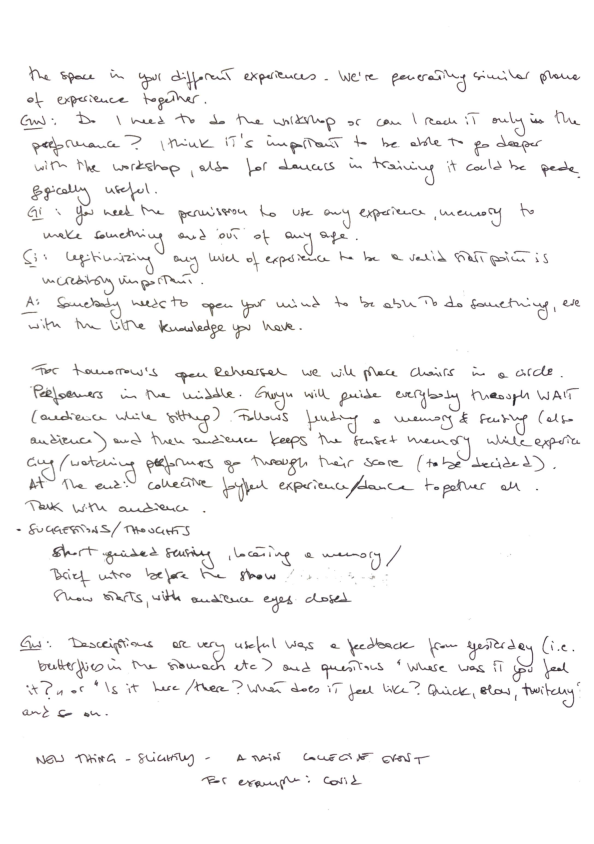 the space in your different experiences - We're generating similar plane
of experience together.
Gw: Do I need to do the workshop or can I reach it only in the
performance? I think it's important to be able to go deeper
with the workshop, also for dancers in training it could be peda
gogically useful.
Gi: You need the permission to use any experience, memory to
make something and out of any age.
Ci: legitimizing any level of experience to be a valid start point is
incredibly important.
A: Somebody needs to open your mind to be able to do something, eve
with the little knowledge you have.
For tomorrow's open Rehearsal we will place chairs in a circle.
Performers in the middle. Gwyn will guide everybody through WAIT
(audience while sitting). Follows finding a memory & sensing (also
audience) and then audience keeps the sunset memory while experien
cing/watching performers go through their score (to be decided).
At the end: collective joyful experience/dance together all.
Talk with audience.
- SUGGESTIONS/THOUGHTS
Short guided sensing, locating a memory/
Brief intro before the show
Show starts, with audience eyes closed
Gw: Descriptions are very useful was a feedback from yesterday (i.e.
butterflies in the stomach etc) and questions "Where was it you feel
it?" or "Is it here/there? What does it feel like? Quick, slow, twitchy"
and so on.
NEW THING - SLIGHTLY - A MAIN COLLECTIVE EVENT
For example: covid